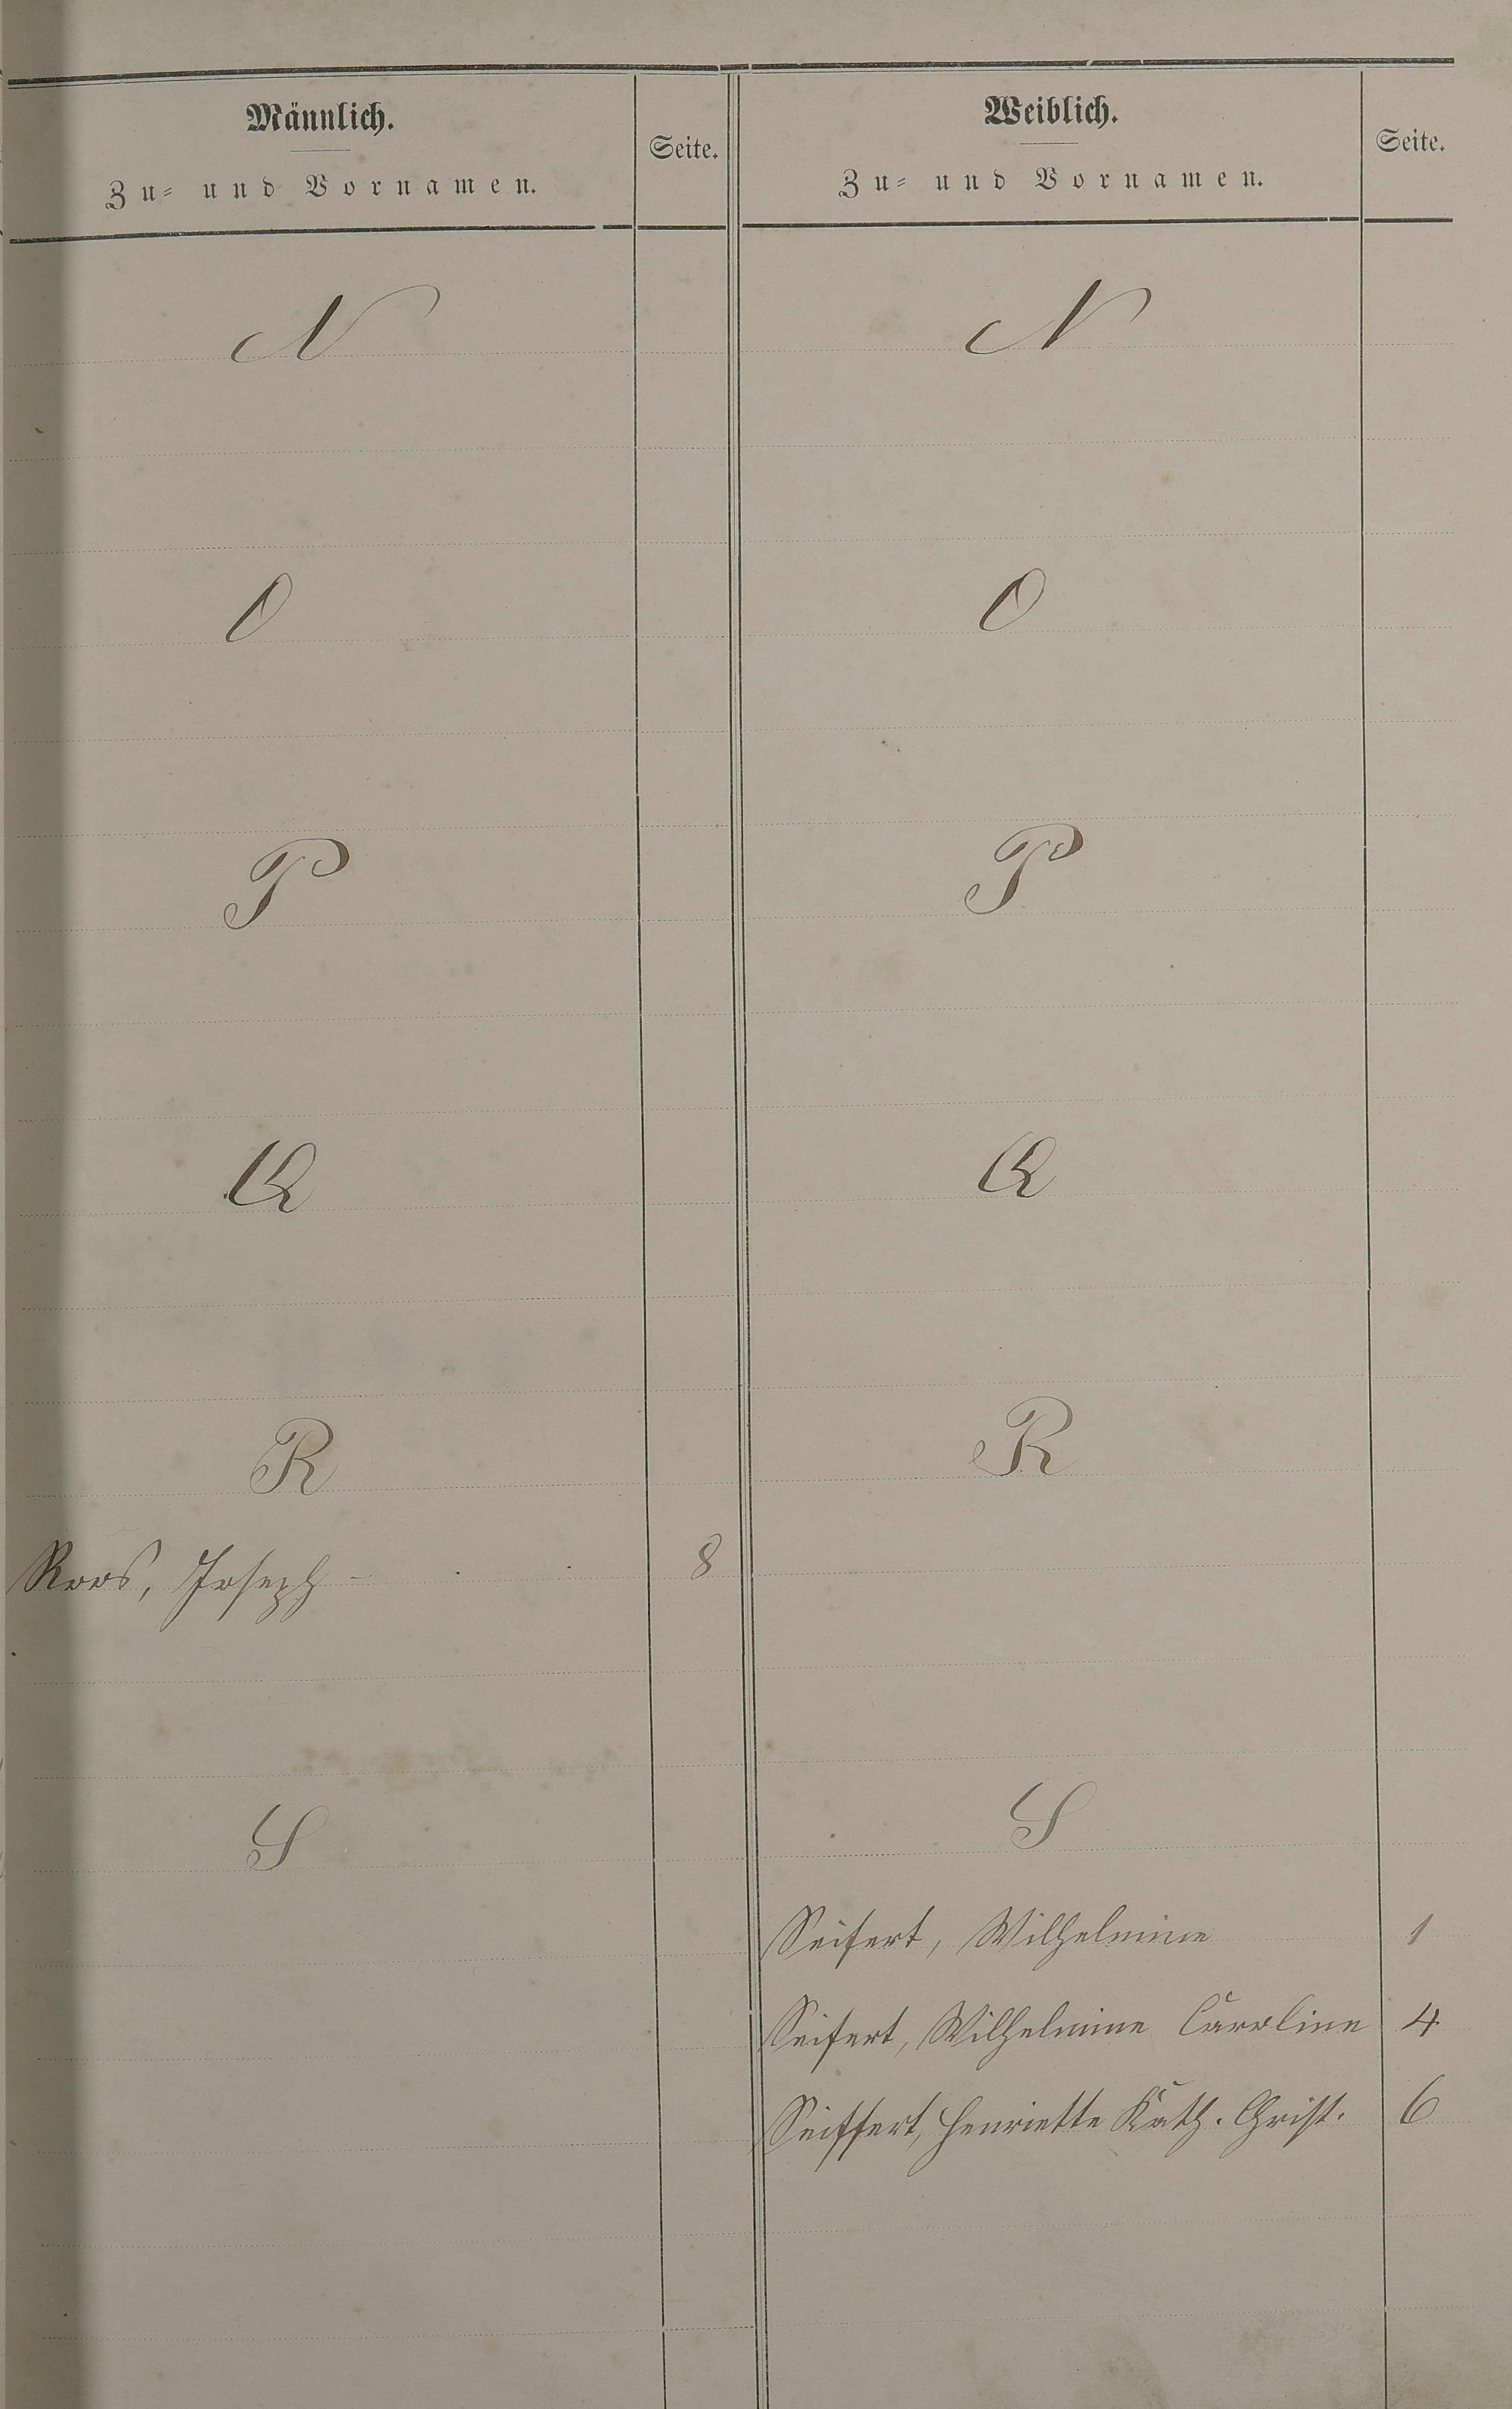 Männlich.
Zu- und Vornamen.
Seite.
Weiblich.
Zu- und Vornamen.
Seite.
N
N
O
O
P
P
Q
Q
R
R
Roos, Joseph - 8
S
S
Seifert, Wilhelmine 1
Seifert, Wilhelmine Caroline 4
Seiffert, Henriette Kath. Christ. 6